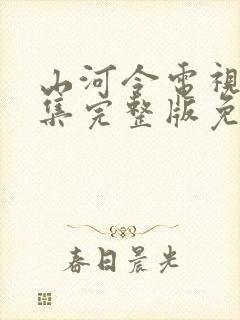 山河令電視
集完整版免
春日晨光